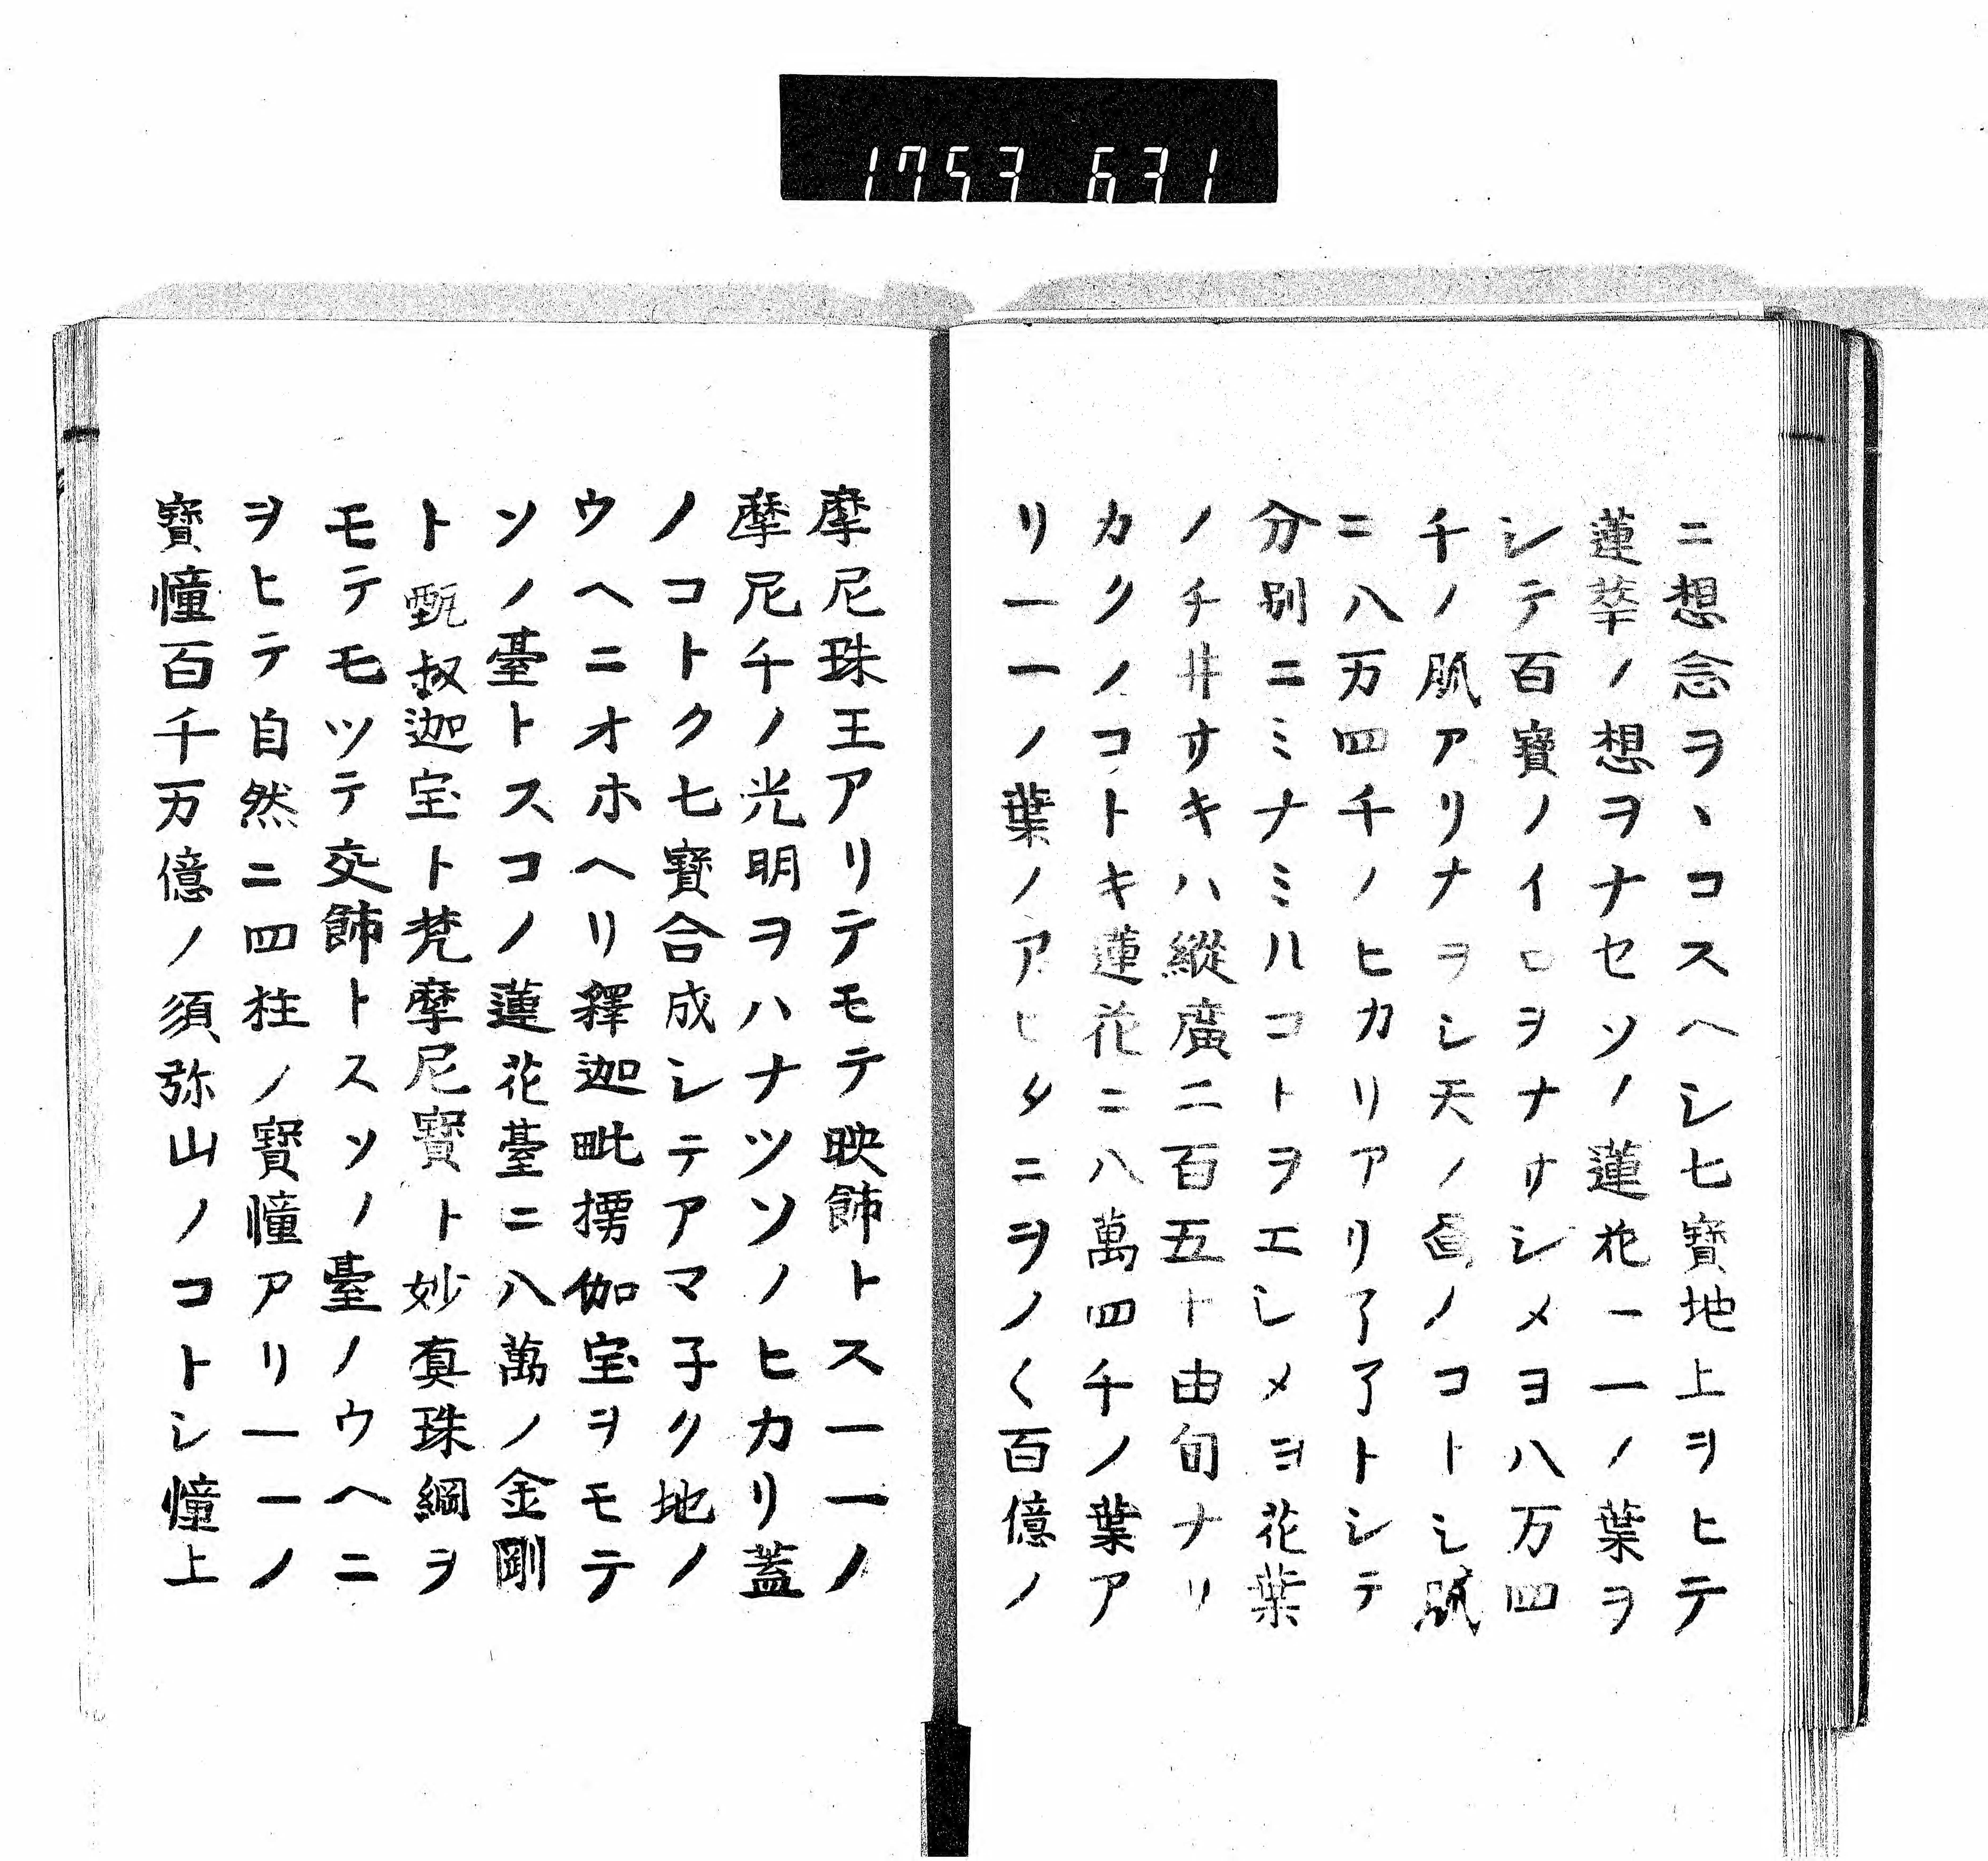 1753 631
ニ想念ヲヽコスヘシ七寳地上ヲヒテ
蓮華ノ想ヲナセソノ蓮花一一ノ葉ヲ
シテ百寳ノイロヲナサシメヨ八万四
千ノ脉アリナヲシ天ノ畫ノコトシ脉
ニ八万四千ノヒカリアリ了了トシテ
分別ニミナミルコトヲエシメヨ花葉
ノチヰサキハ縱廣二百五十由旬ナリ
カクノコトキ蓮花ニ八萬四千ノ葉ア
リ一一ノ葉ノアヒタニヲノ〱百億ノ
摩尼珠王アリテモテ映飾トス一一ノ
摩尼千ノ光明ヲハナツソノヒカリ蓋
ノコトク七寳合成シテアマ子ク地ノ
ウヘニオホヘリ釋迦毗楞伽宝ヲモテ
ソノ臺トスコノ蓮花臺ニ八萬ノ金剛
ト甄叔迦宝ト梵摩尼寳ト妙真珠綱ヲ
モテモツテ交飾トスソノ臺ノウヘニ
ヲヒテ自然ニ四柱ノ寳憧アリ一一ノ
寳憧百千万億ノ須弥山ノコトシ憧上